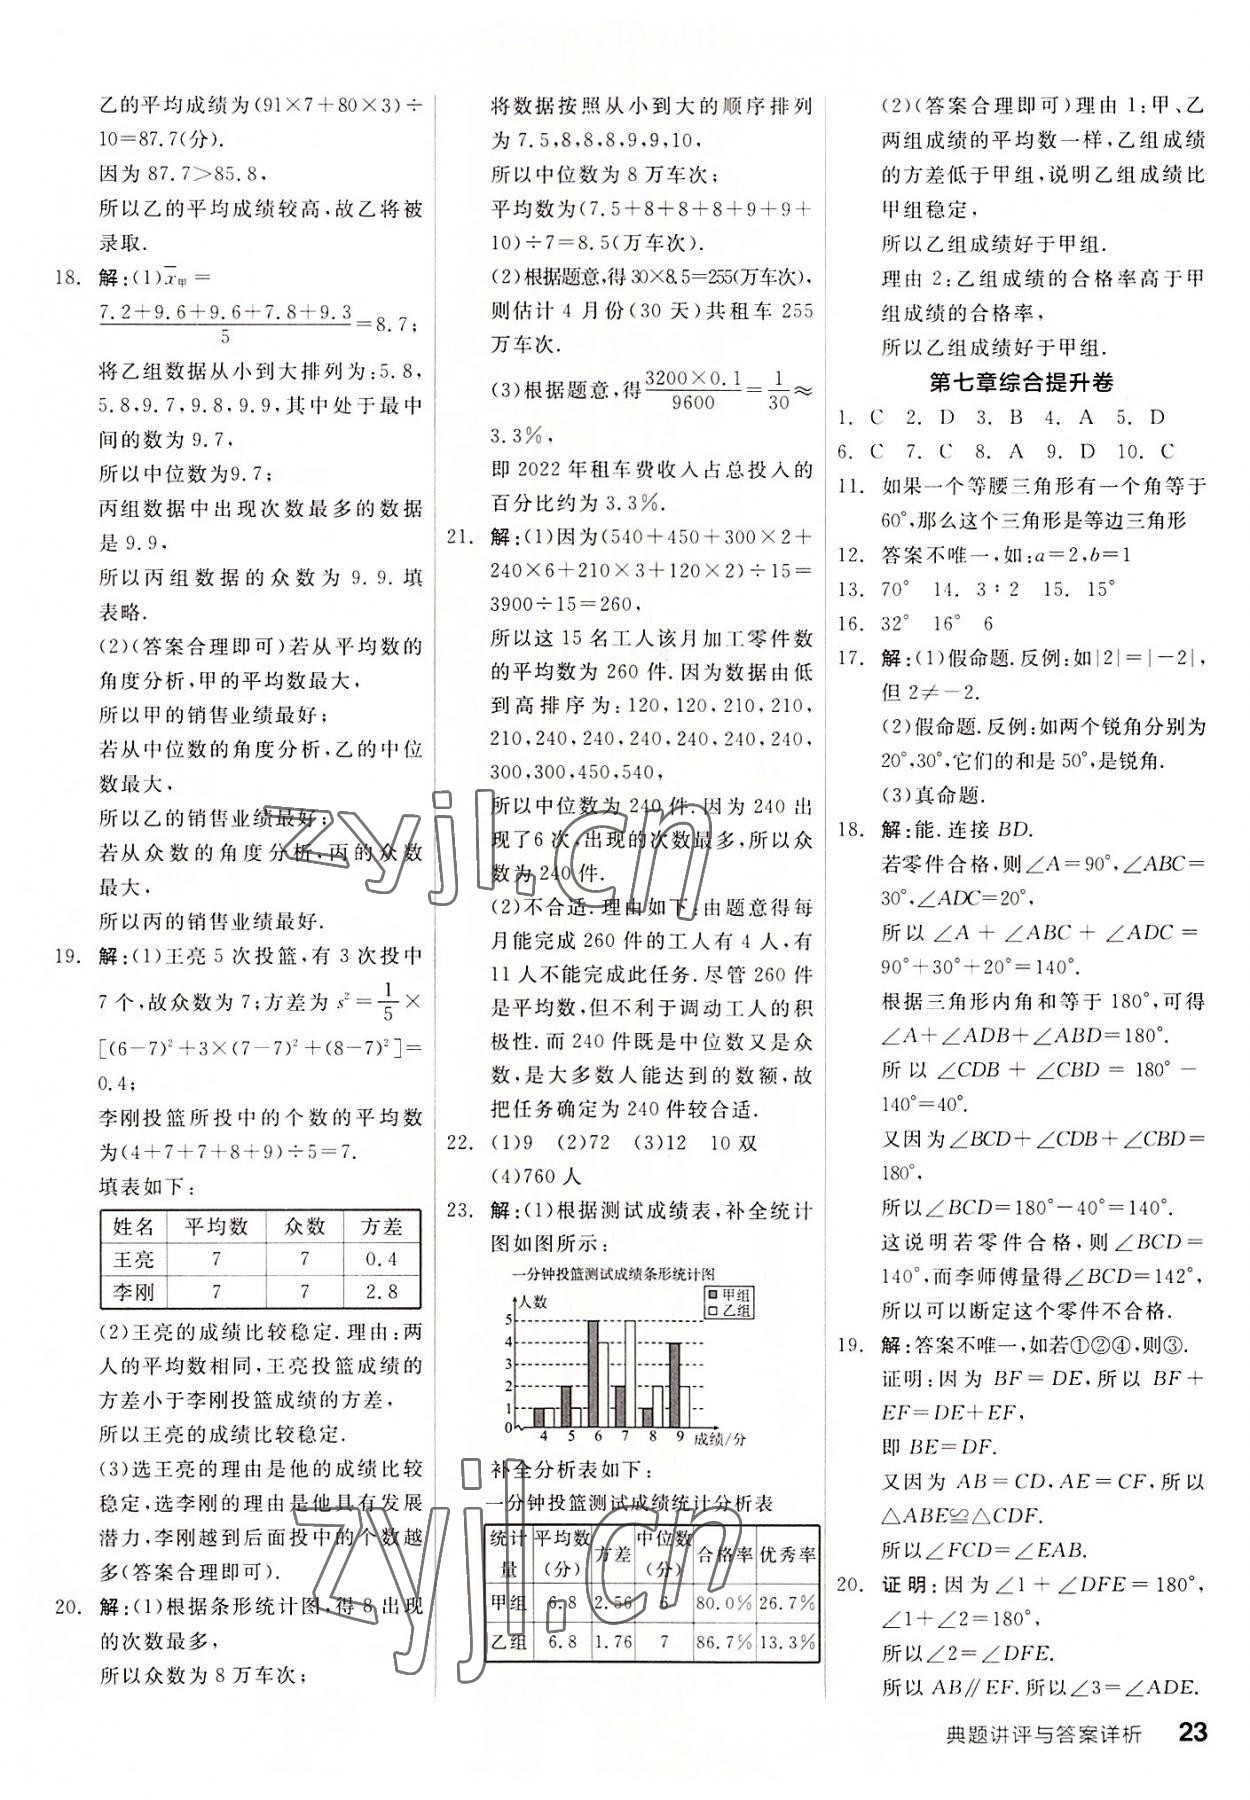 乙的平均成绩为(91×7+80×3)÷
10=87.7(分).
因为 87.7>85.8,
所以乙的平均成绩较高,故乙将被
录取.
18. 解:(1)x̄甲=
(7.2+9.6+9.6+7.8+9.3)/5=8.7;
将乙组数据从小到大排列为:5.8,
5.8,9.7,9.8,9.9,其中处于最中
间的数为 9.7,
所以中位数为9.7;
丙组数据中出现次数最多的数据
是 9.9,
所以丙组数据的众数为 9.9.填
表略.
(2)(答案合理即可)若从平均数的
角度分析,甲的平均数最大,
所以甲的销售业绩最好;
若从中位数的角度分析,乙的中位
数最大,
所以乙的销售业绩最好;
若从众数的角度分析,丙的众数
最大,
所以丙的销售业绩最好.
19. 解:(1)王亮 5 次投篮,有 3 次投中
7 个,故众数为 7;方差为 s²=1/5×
[(6-7)²+3×(7-7)²+(8-7)²]=
0.4;
李刚投篮所投中的个数的平均数
为(4+7+7+8+9)÷5=7.
填表如下:
姓名 平均数 众数 方差
王亮 7 7 0.4
李刚 7 7 2.8
(2)王亮的成绩比较稳定.理由:两
人的平均数相同,王亮投篮成绩的
方差小于李刚投篮成绩的方差,
所以王亮的成绩比较稳定.
(3)选王亮的理由是他的成绩比较
稳定,选李刚的理由是他具有发展
潜力,李刚越到后面投中的个数越
多(答案合理即可).
20. 解:(1)根据条形统计图,得 8 出现
的次数最多,
所以众数为 8 万车次;
将数据按照从小到大的顺序排列
为 7.5,8,8,8,9,9,10,
所以中位数为 8 万车次;
平均数为(7.5+8+8+8+9+9+
10)÷7=8.5(万车次).
(2)根据题意,得 30×8.5=255(万车次),
则估计 4 月份(30 天)共租车 255
万车次.
(3)根据题意,得(3200×0.1)/9600=1/30≈
3.3%,
即 2022 年租车费收入占总投入的
百分比约为 3.3%.
21. 解:(1)因为(540+450+300×2+
240×6+210×3+120×2)÷15=
3900÷15=260,
所以这 15 名工人该月加工零件数
的平均数为 260 件.因为数据由低
到高排序为:120,120,210,210,
210,240,240,240,240,240,240,
300,300,450,540,
所以中位数为 240 件.因为 240 出
现了6 次,出现的次数最多,所以众
数为 240 件.
(2)不合适.理由如下:由题意得每
月能完成 260 件的工人有 4 人,有
11 人不能完成此任务.尽管 260 件
是平均数,但不利于调动工人的积
极性.而 240 件既是中位数又是众
数,是大多数人能达到的数额,故
把任务确定为 240 件较合适.
22. (1)9 (2)72 (3)12 10 双
(4)760 人
23. 解:(1)根据测试成绩表,补全统计
图如图所示:
一分钟投篮测试成绩条形统计图
人数 甲组 乙组
5
4
3
2
1
0 4 5 6 7 8 9 成绩/分
补全分析表如下:
一分钟投篮测试成绩统计分析表
统计量 平均数(分) 方差 中位数(分) 合格率 优秀率
甲组 6.8 2.56 6 80.0% 26.7%
乙组 6.8 1.76 7 86.7% 13.3%
(2)(答案合理即可)理由 1:甲、乙
两组成绩的平均数一样,乙组成绩
的方差低于甲组,说明乙组成绩比
甲组稳定,
所以乙组成绩好于甲组.
理由 2:乙组成绩的合格率高于甲
组成绩的合格率,
所以乙组成绩好于甲组.
第七章综合提升卷
1. C 2. D 3. B 4. A 5. D
6. C 7. C 8. A 9. D 10. C
11. 如果一个等腰三角形有一个角等于
60°,那么这个三角形是等边三角形
12. 答案不唯一,如:a=2,b=1
13. 70° 14. 3∶2 15. 15°
16. 32° 16° 6
17. 解:(1)假命题.反例:如|2|=|-2|,
但 2≠-2.
(2)假命题.反例:如两个锐角分别为
20°,30°,它们的和是 50°,是锐角.
(3)真命题.
18. 解:能.连接 BD.
若零件合格,则∠A=90°,∠ABC=
30°,∠ADC=20°,
所以 ∠A + ∠ABC + ∠ADC =
90°+30°+20°=140°.
根据三角形内角和等于 180°,可得
∠A+∠ADB+∠ABD=180°.
所以 ∠CDB + ∠CBD = 180° -
140°=40°.
又因为∠BCD+∠CDB+∠CBD=
180°,
所以∠BCD=180°-40°=140°.
这说明若零件合格,则∠BCD=
140°,而李师傅量得∠BCD=142°,
所以可以断定这个零件不合格.
19. 解:答案不唯一,如若①②④,则③.
证明:因为 BF=DE,所以 BF+
EF=DE+EF,
即 BE=DF.
又因为 AB=CD,AE=CF,所以
△ABE≌△CDF.
所以∠FCD=∠EAB.
20. 证明:因为∠1+∠DFE=180°,
∠1+∠2=180°,
所以∠2=∠DFE.
所以 AB∥EF.所以∠3=∠ADE.
典题讲评与答案详析 23
zyjl.cn
zyjl.cn